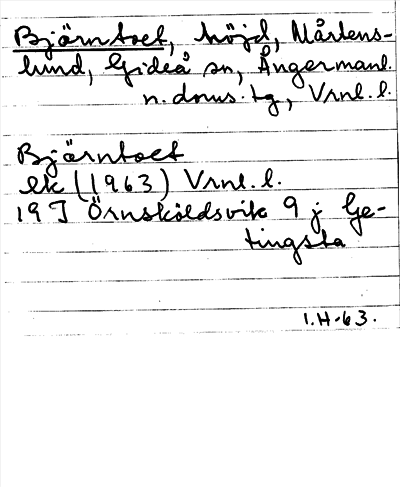 Björntoet, höjd, Mårtens-
lund, Gideå sn, Ångermanl.
n. doms. tg, Vrnl. l.
Björntoet
ek (1963) Vrnl. l.
19 I Örnsköldsvik 9 j Ge-
tingsta
I.H-63.